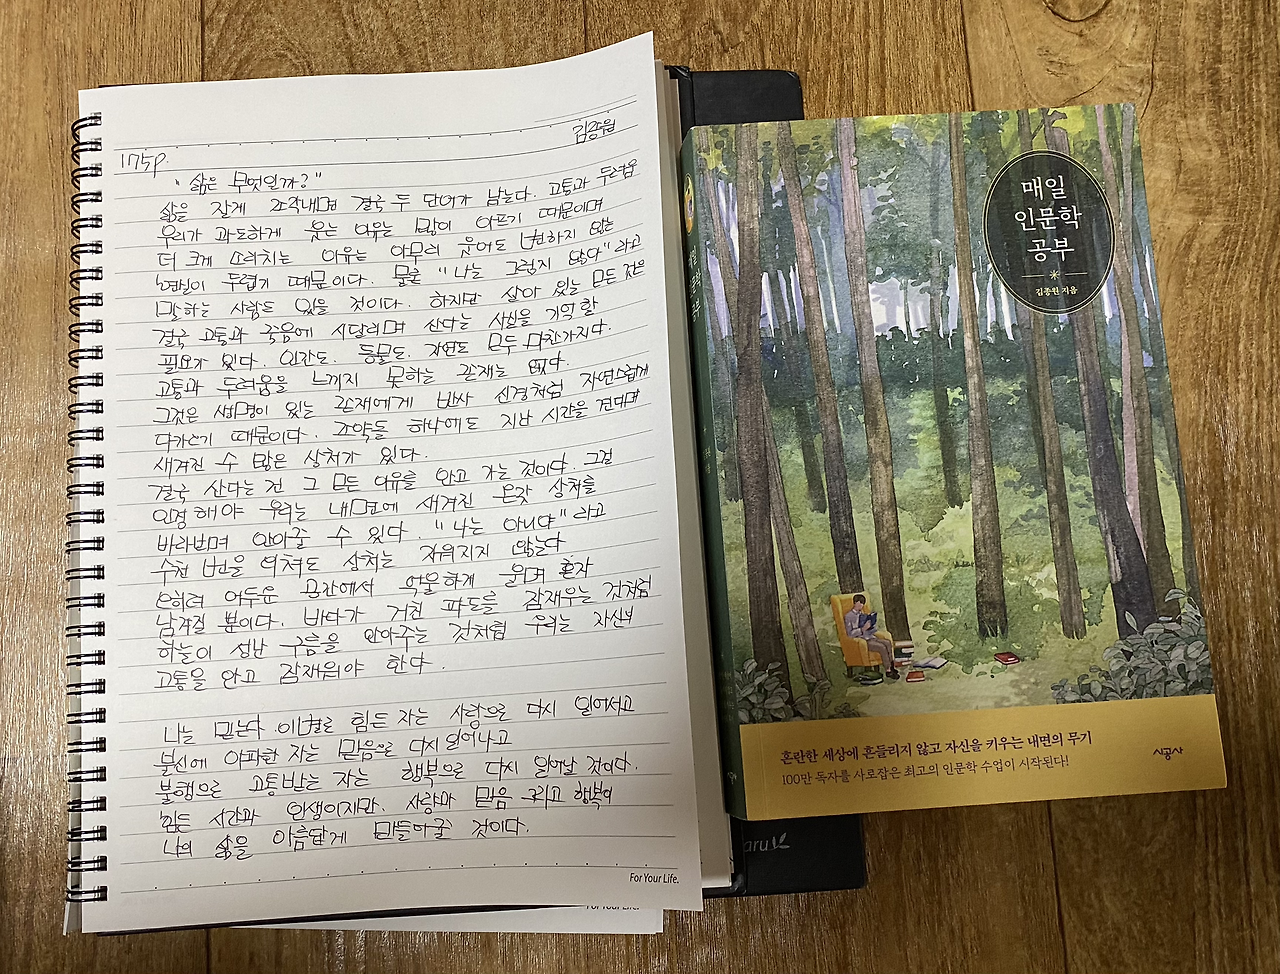 김종원
175p.
"삶은 무엇인가?"
삶을 잘게 조각내면 결국 두 단어가 남는다. 고통과 두려움
우리가 과도하게 웃는 이유는 많이 아프기 때문이며
더 크게 소리치는 이유는 아무리 웃어도 변하지 않는
현실이 두렵기 때문이다. 물론 "나는 그렇지 않다"라고
말하는 사람도 있을 것이다. 하지만 살아 있는 모든 것은
결국 고통과 죽음에 시달리며 산다는 사실을 기억할
필요가 있다. 인간도. 동물도. 자연도 모두 마찬가지다.
고통과 두려움을 느끼지 못하는 존재는 없다.
그것은 생명이 있는 존재에게 반사 신경처럼 자연스럽게
다가오기 때문이다. 조약돌 하나에도 지난 시간을 견디며
새겨진 수 많은 상처가 있다.
결국 산다는 건 그 모든 이유를 안고 가는 것이다. 그걸
인정해야 우리는 내면에 새겨진 온갖 상처를
바라보며 안아줄 수 있다. "나는 아니야"라고
수천 번을 외쳐도 상처는 지워지지 않는다
오히려 어두운 공간에서 억울하게 울며 혼자
남겨질 뿐이다. 바다가 거친 파도를 잠재우는 것처럼
하늘이 성난 구름을 안아주는 것처럼 우리는 자신의
고통을 안고 잠재워야 한다.
나는 믿는다 이별로 힘든 자는 사랑으로 다시 일어서고
불신에 아파한 자는 믿음으로 다시 일어나고
불행으로 고통받는 자는 행복으로 다시 일어날 것이다.
힘든 시간과 인생이지만. 사랑과 믿음 그리고 행복이
나의 삶을 아름답게 만들어줄 것이다.
For Your Life.
For Your Life.
매일
인문학
공부
김종원 지음
혼란한 세상에 흔들리지 않고 자신을 키우는 내면의 무기
100만 독자를 사로잡은 최고의 인문학 수업이 시작된다!
시공사
aru